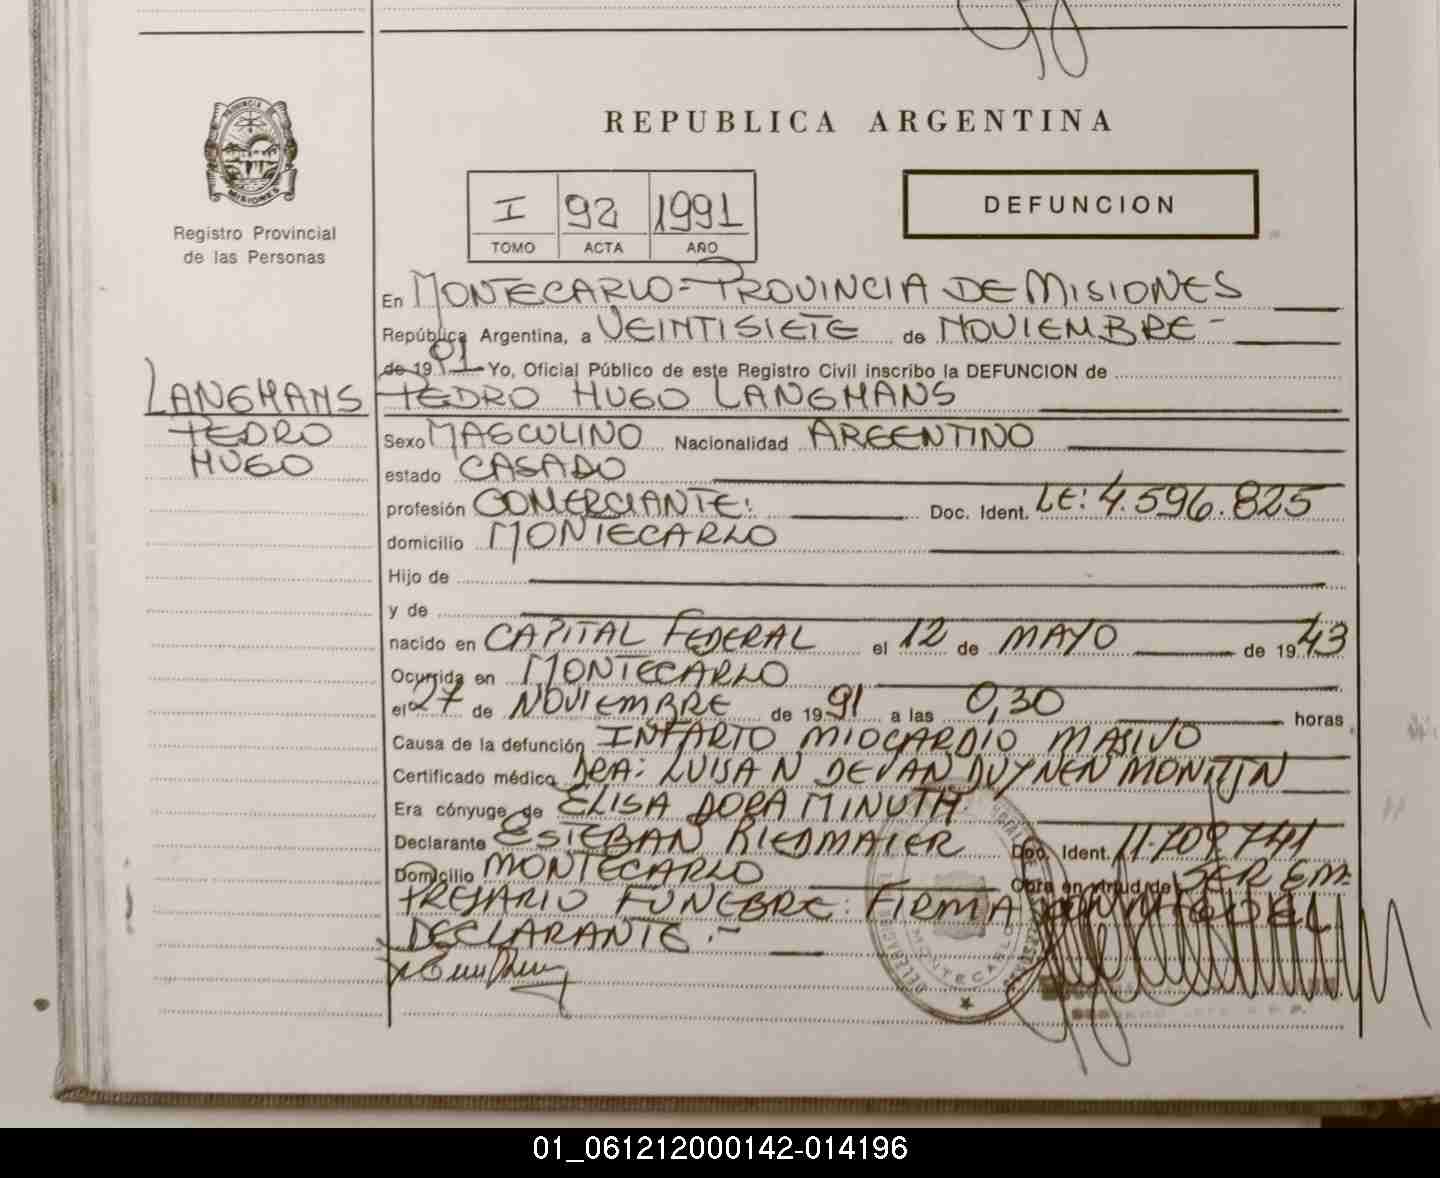 REPUBLICA ARGENTINA
PROVINCIA
MISIONES
Registro Provincial
de las Personas
I 92 1991
TOMO ACTA AÑO
DEFUNCION
En MONTECARLO=PROVINCIA DE MISIONES
República Argentina, a VEINTISIETE de NOVIEMBRE-
de 19 91 Yo, Oficial Público de este Registro Civil inscribo la DEFUNCION de
PEDRO HUGO LANGMANS
LANGMANS
PEDRO
HUGO
Sexo MASCULINO Nacionalidad ARGENTINO
estado CASADO
profesión COMERCIANTE: Doc. Ident. LE: 4.596.825
domicilio MONTECARLO
Hijo de
y de
nacido en CAPITAL FEDERAL el 12 de MAYO de 19 43
Ocurrida en MONTECARLO
el 27 de NOVIEMBRE de 19 91 a las 0,30 horas
Causa de la defunción INFARTO MIOCARDIO MASIVO
Certificado médico DRA: LUISA N DE VAN DUYNEN
Era cónyuge de ELISA DORA MINUTH
Declarante ESTEBAN RIEDMAIER Doc. Ident. 11.709741
Domicilio MONTECARLO Obra en virtud de SER EM-
PRESARIO FUNEBRE: FIRMA
DECLARANTE.-
MONTECARLO
01_061212000142-014196